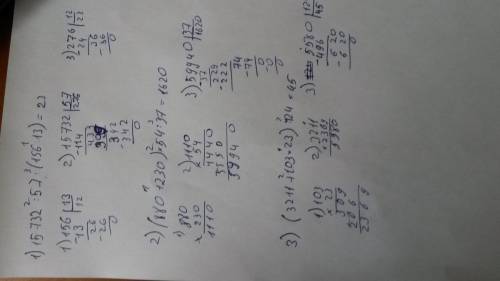 1) 15732 : 57 : (156 : 13) = 23
1) 156 | 13
-13 | 12
26
-26
0
2) 15732 | 57
-114 | 276
433
399
342
-342
0
3) 276 | 12
24 | 23
36
-36
0
2) (880+230)·54:37=1620
1) 880
+230
1110
2) 1110
x 54
4440
5550
59940
3) 59940 | 37
-37 | 1620
229
-222
74
-74
0
-0
0
3) (3211+103·23):124=45
1) 103
x 23
309
206
2369
2) 3211
+2369
5580
3) 5580 | 12
-496 | 45
620
-620
0